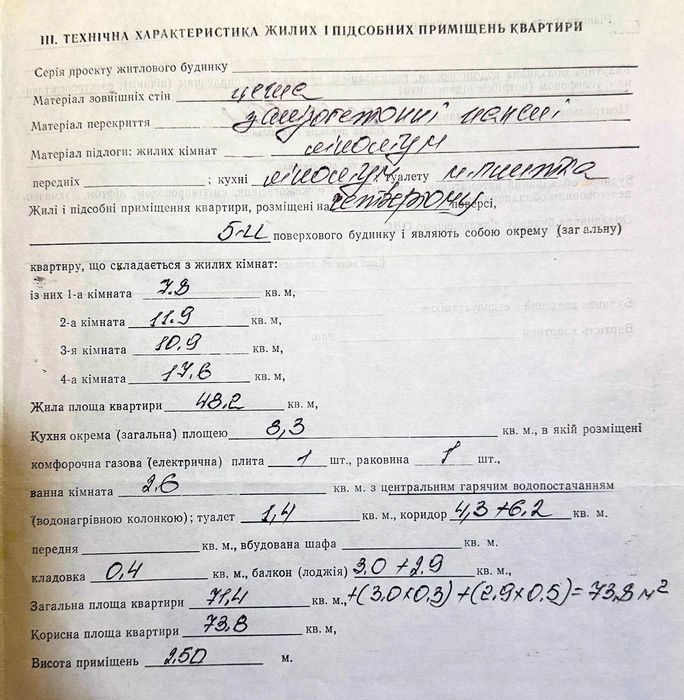 III. ТЕХНІЧНА ХАРАКТЕРИСТИКА ЖИЛИХ І ПІДСОБНИХ ПРИМІЩЕНЬ КВАРТИРИ
Серія проекту житлового будинку
Матеріал зовнішніх стін цегла
Матеріал перекриття залізобетонні панелі
Матеріал підлоги: жилих кімнат лінолеум
передніх ; кухні лінолеум, туалету м.плитка
Жилі і підсобні приміщення квартири, розміщені на четвертому поверсі,
5-и поверхового будинку і являють собою окрему (загальну)
квартиру, що складається з жилих кімнат:
із них 1-а кімната 7.8 кв. м,
2-а кімната 11.9 кв. м,
3-я кімната 10.9 кв. м,
4-а кімната 17.6 кв. м,
Жила площа квартири 48.2 кв. м,
Кухня окрема (загальна) площею 8,3 кв. м., в якій розміщені
комфорочна газова (електрична) плита 1 шт., раковина 1 шт.,
ванна кімната 2.6 кв. м. з центральним гарячим водопостачанням
(водонагрівною колонкою); туалет 1,4 кв. м., коридор 4,3+6.2 кв. м.
передня кв. м., вбудована шафа кв. м.
кладовка 0,4 кв. м., балкон (лоджія) 3.0+2.9 кв. м.,
Загальна площа квартири 71,4 кв. м., +(3,0×0,3)+(2,9×0,5)=73,8 м²
Корисна площа квартири 73.8 кв. м,
Висота приміщень 2.50 м.